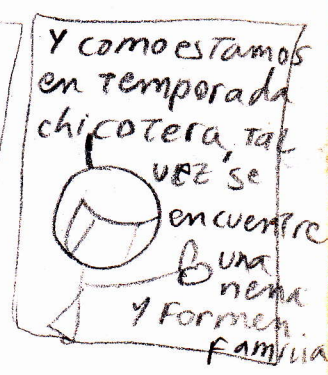 Y como estamos
en temporada
chicotera, tal
vez se
encuentre
una
nena
y formen
familia